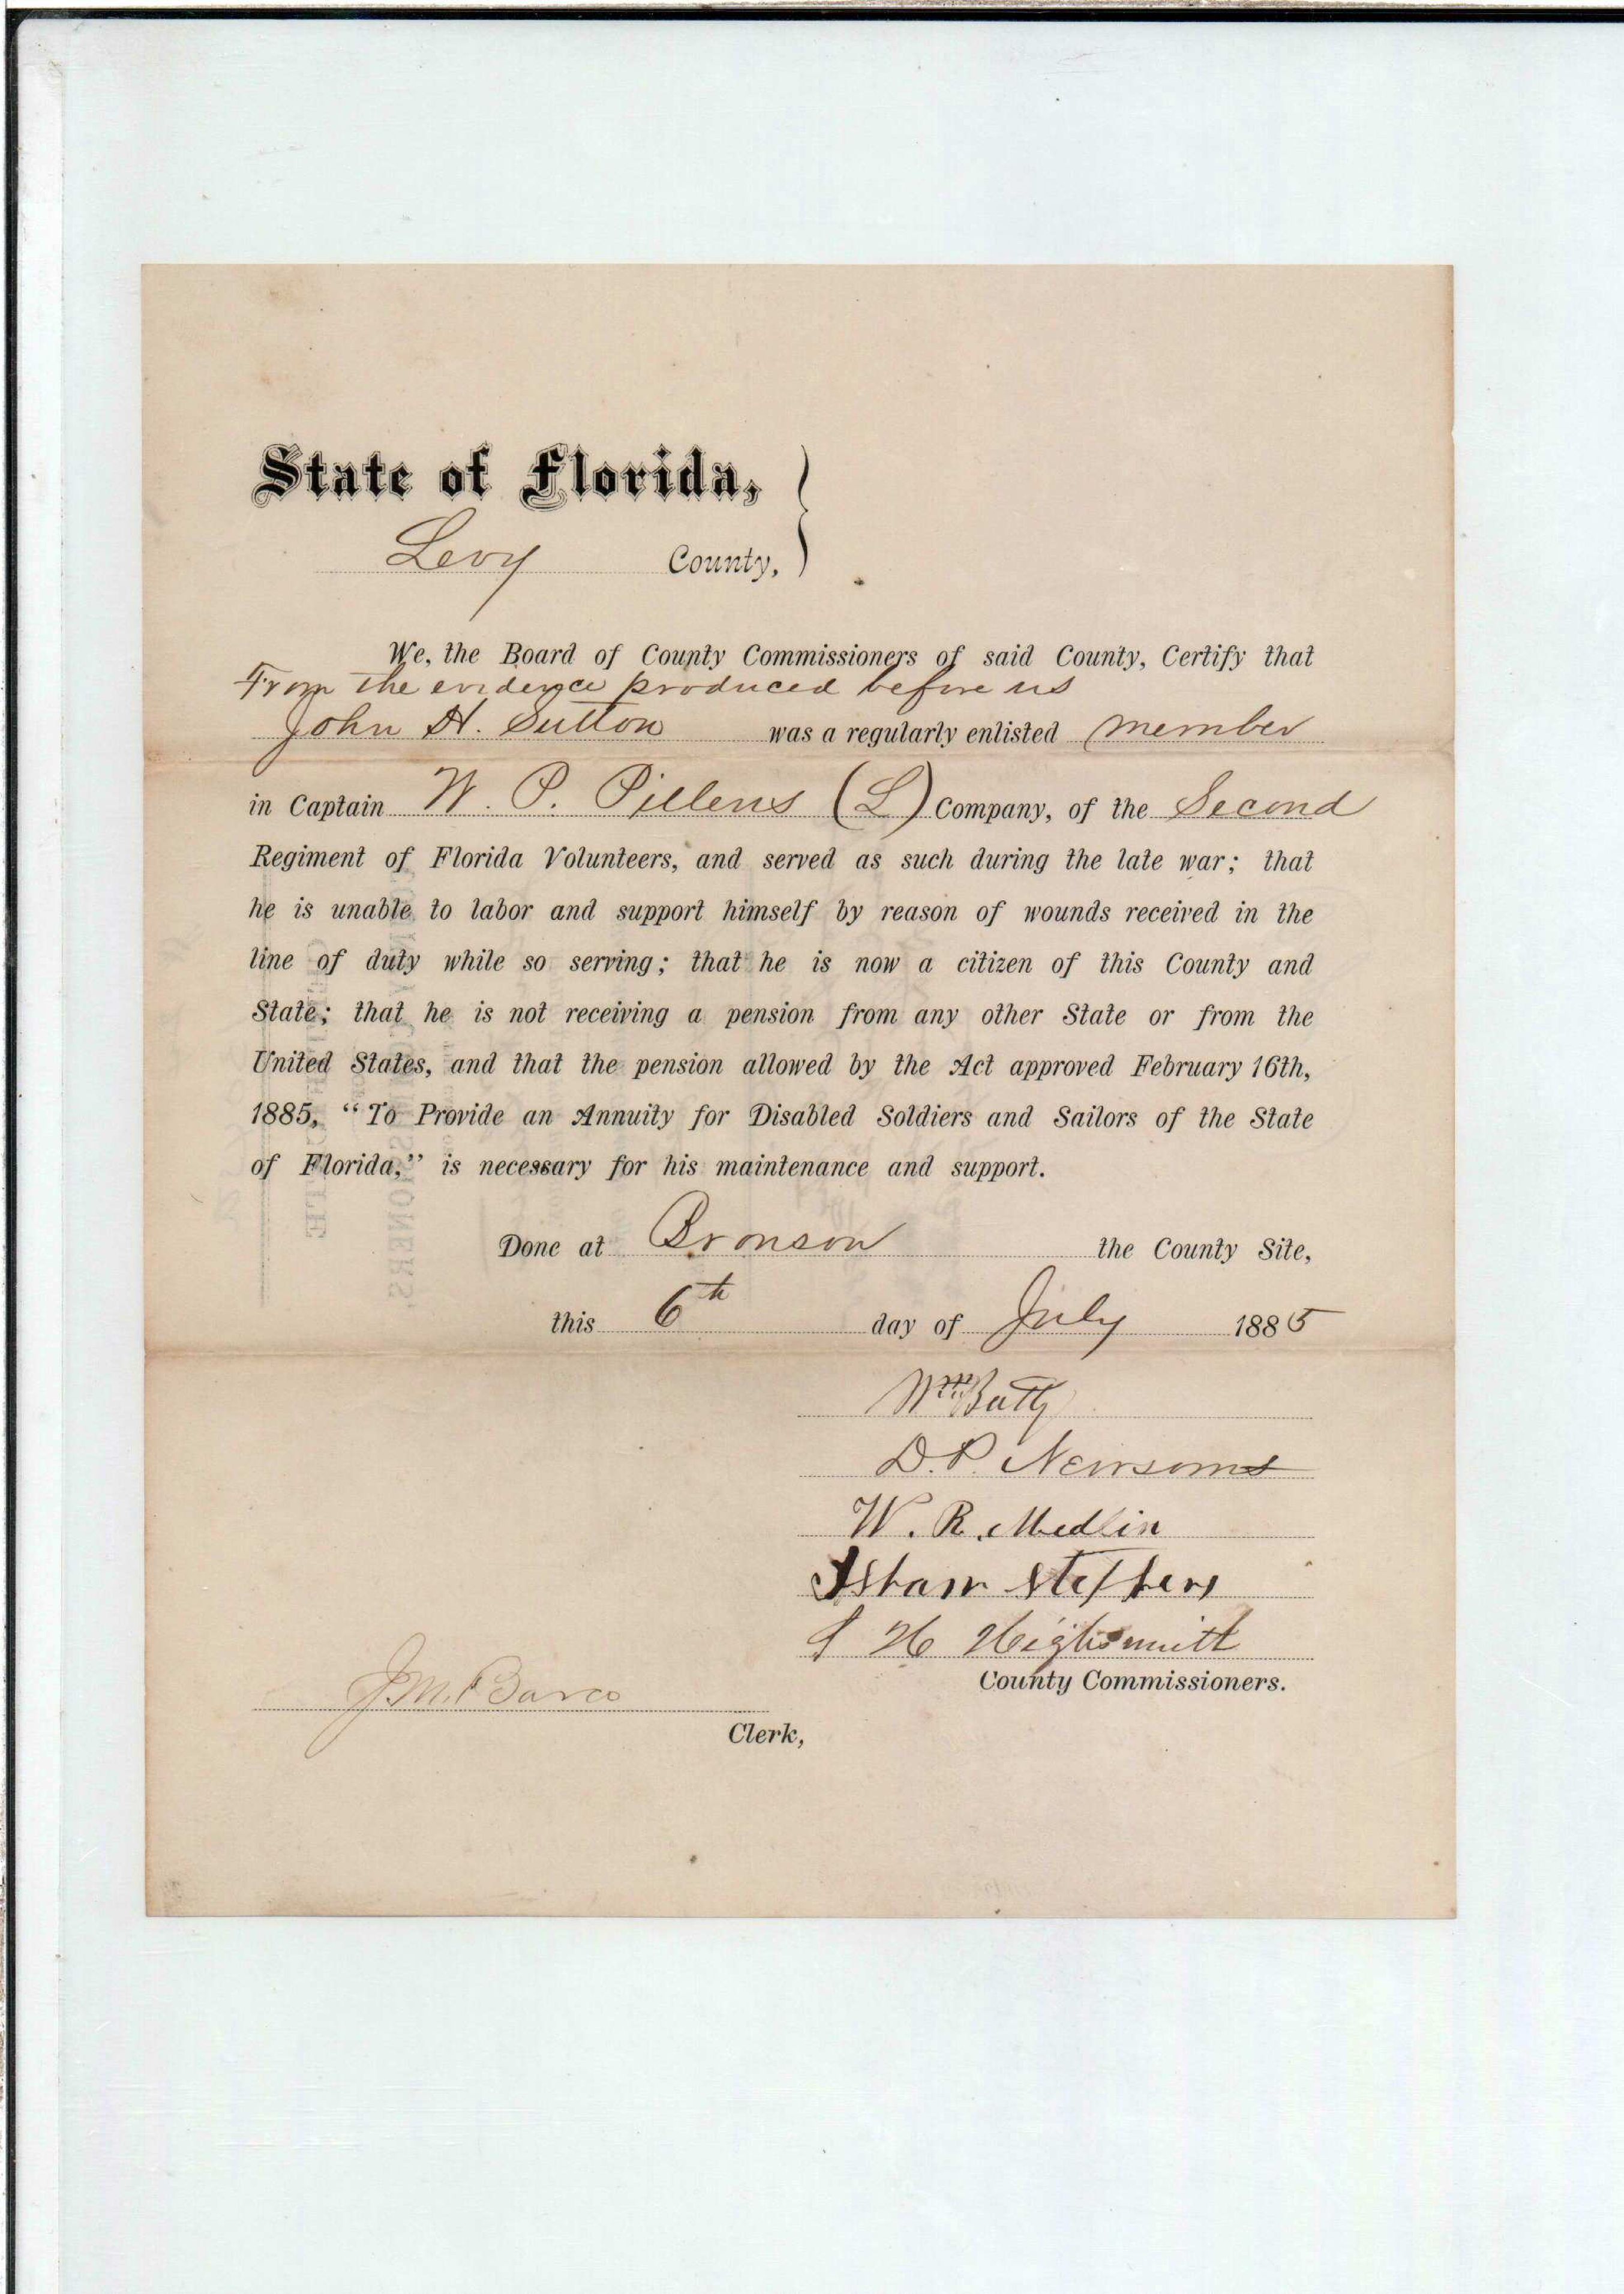 State of Florida,
Levy County,
We, the Board of County Commissioners of said County, Certify that
From the evidence produced before us
John H. Sutton was a regularly enlisted member
in Captain W. P. Pillens (L) Company, of the Second
Regiment of Florida Volunteers, and served as such during the late war; that
he is unable to labor and support himself by reason of wounds received in the
line of duty while so serving; that he is now a citizen of this County and
State; that he is not receiving a pension from any other State or from the
United States, and that the pension allowed by the Act approved February 16th,
1885, “To Provide an Annuity for Disabled Soldiers and Sailors of the State
of Florida,” is necessary for his maintenance and support.
Done at Bronson the County Site,
this 6th day of July 1885
Wm
D. P. Newsome
W. R. Medlin
Isham Stephens
H Highsmith
County Commissioners.
J. M. Barco
Clerk,